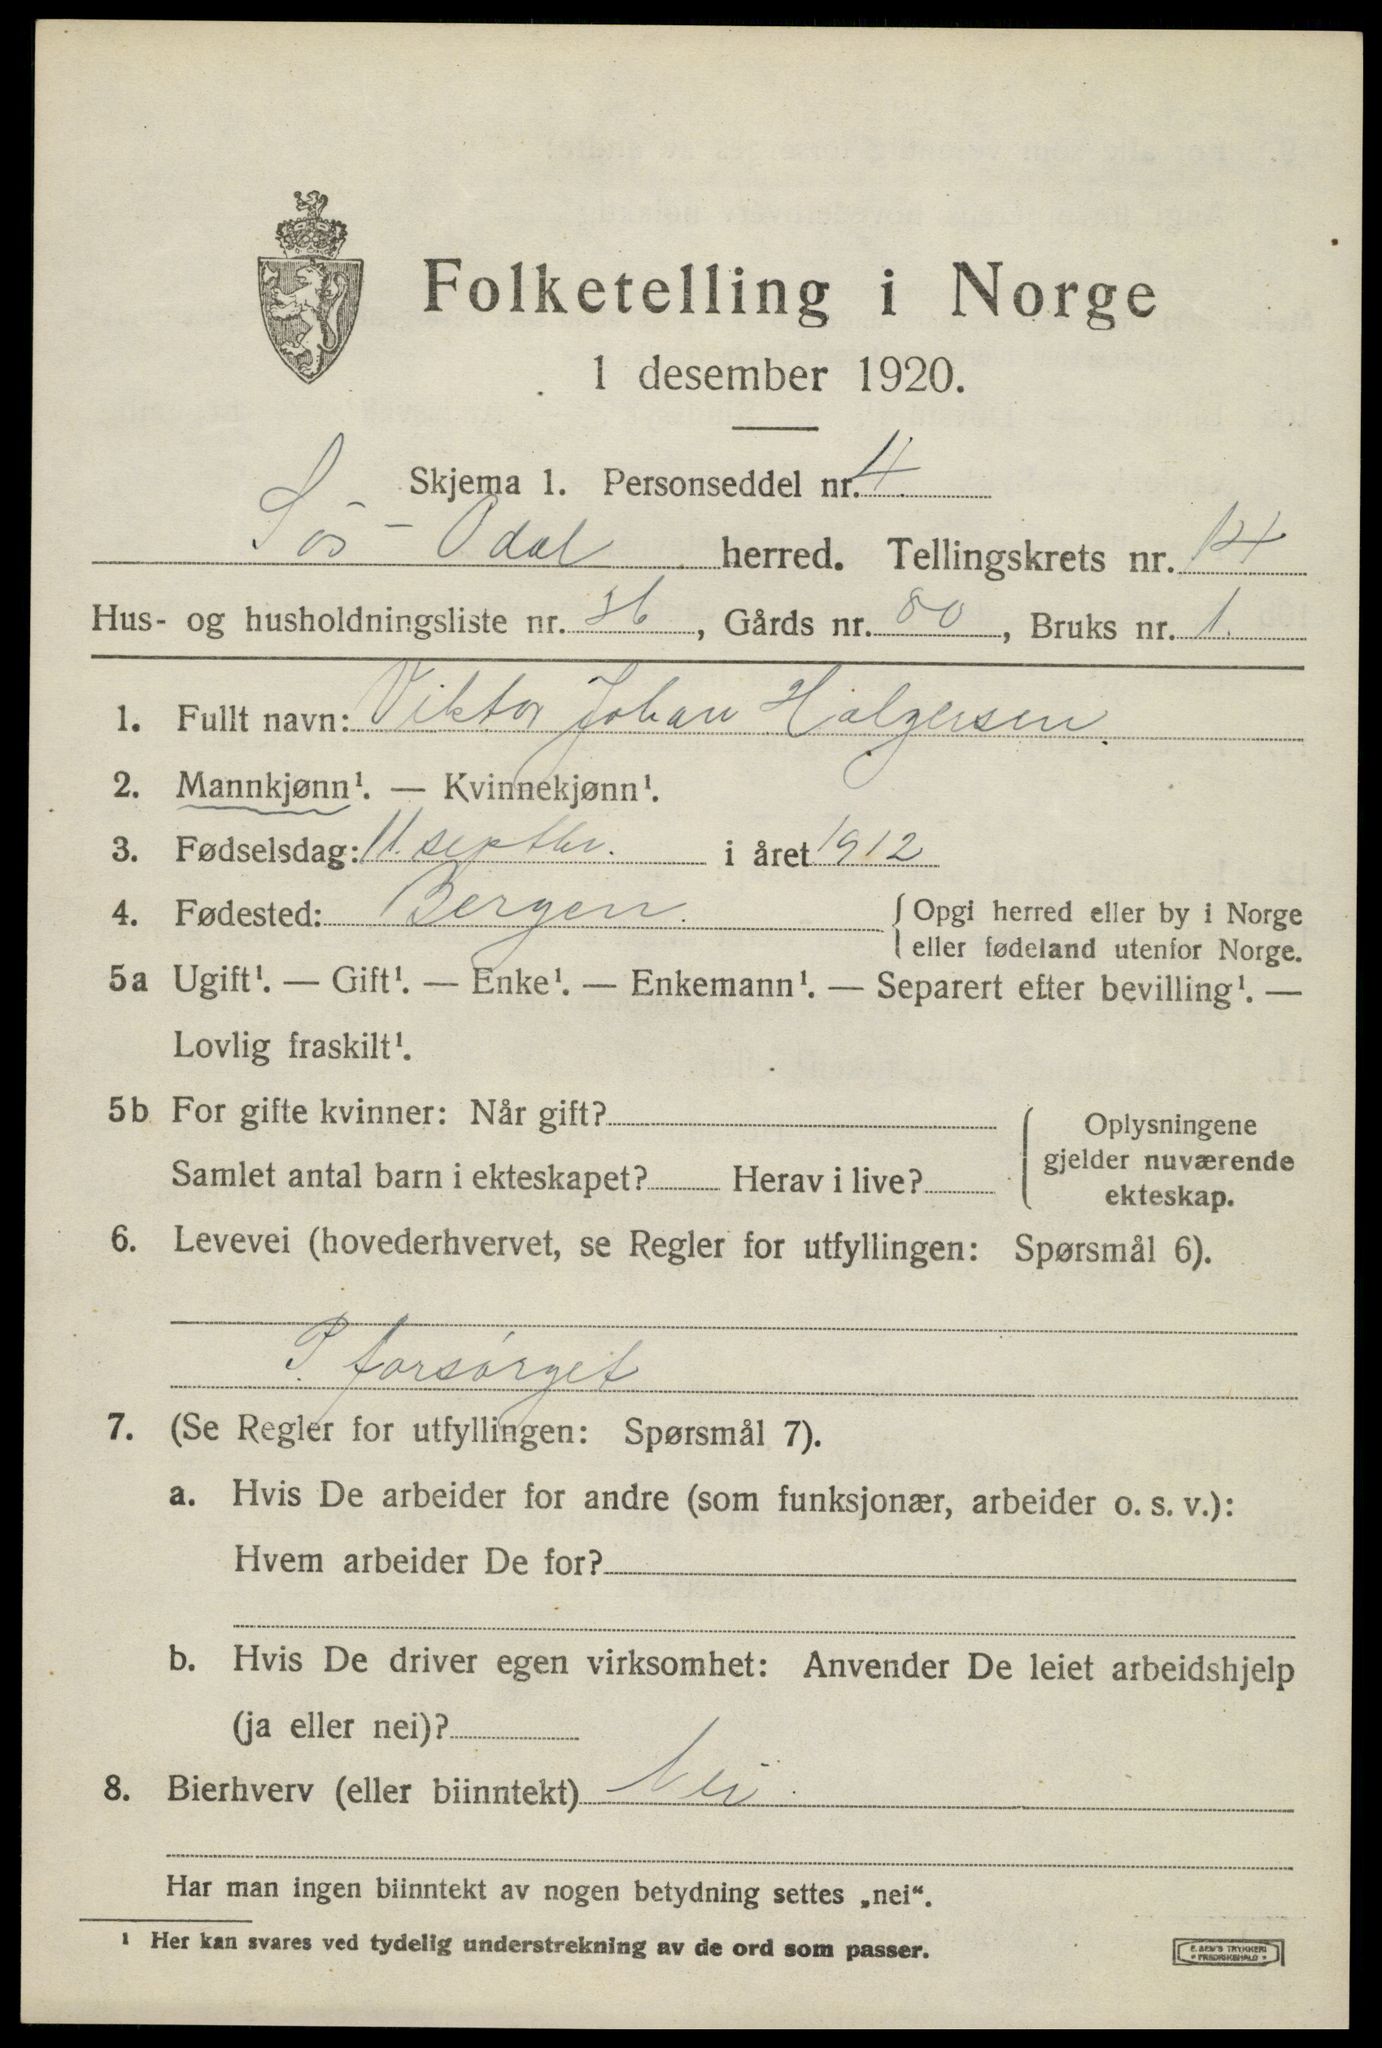 Folketelling i Norge
1 desember 1920.
Skjema 1. Personseddel nr. 4
Sös - Odal herred. Tellingskrets nr. 14
Hus- og husholdningsliste nr. 36, Gårds nr. 80, Bruks nr. 1.
1. Fullt navn: Viktor Johan Holgersen.
2. Mannkjønn¹. — Kvinnekjønn¹.
3. Fødselsdag: 11. septbr. i året 1912
4. Fødested: Bergen. { Opgi herred eller by i Norge
eller fødeland utenfor Norge.
5a Ugift¹. — Gift¹. — Enke¹. — Enkemann¹. — Separert efter bevilling¹. —
Lovlig fraskilt¹.
5b For gifte kvinner: Når gift? { Oplysningene
gjelder nuværende
ekteskap.
Samlet antal barn i ekteskapet? Herav i live?
6. Levevei (hovederhvervet, se Regler for utfyllingen: Spørsmål 6).
P. forsørget
7. (Se Regler for utfyllingen: Spørsmål 7).
a. Hvis De arbeider for andre (som funksjonær, arbeider o. s. v.):
Hvem arbeider De for?
b. Hvis De driver egen virksomhet: Anvender De leiet arbeidshjelp
(ja eller nei)?
8. Bierhverv (eller biinntekt) Nei.
Har man ingen biinntekt av nogen betydning settes „nei“.
¹ Her kan svares ved tydelig understrekning av de ord som passer.
E. SEM'S TRYKKERI
* FREDRIKSHALD *